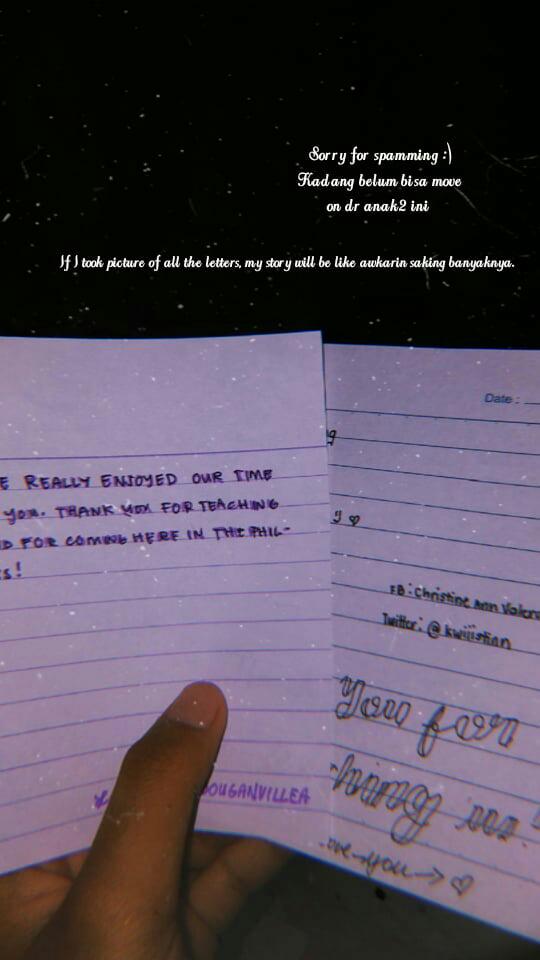 Sorry for spamming :)
Kadang belum bisa move
on dr anak2 ini
If I took picture of all the letters, my story will be like awkarin saking banyaknya.
E REALLY ENJOYED OUR TIME
YOU. THANK YOU FOR TEACHING
D FOR COMING HERE IN THE PHIL-
S!
OUGANVILLEA
Date :
y ♡
FB: Christine Ann Valer
Twitter: @kwiiistian
You for
ching us!
ove you → ♡